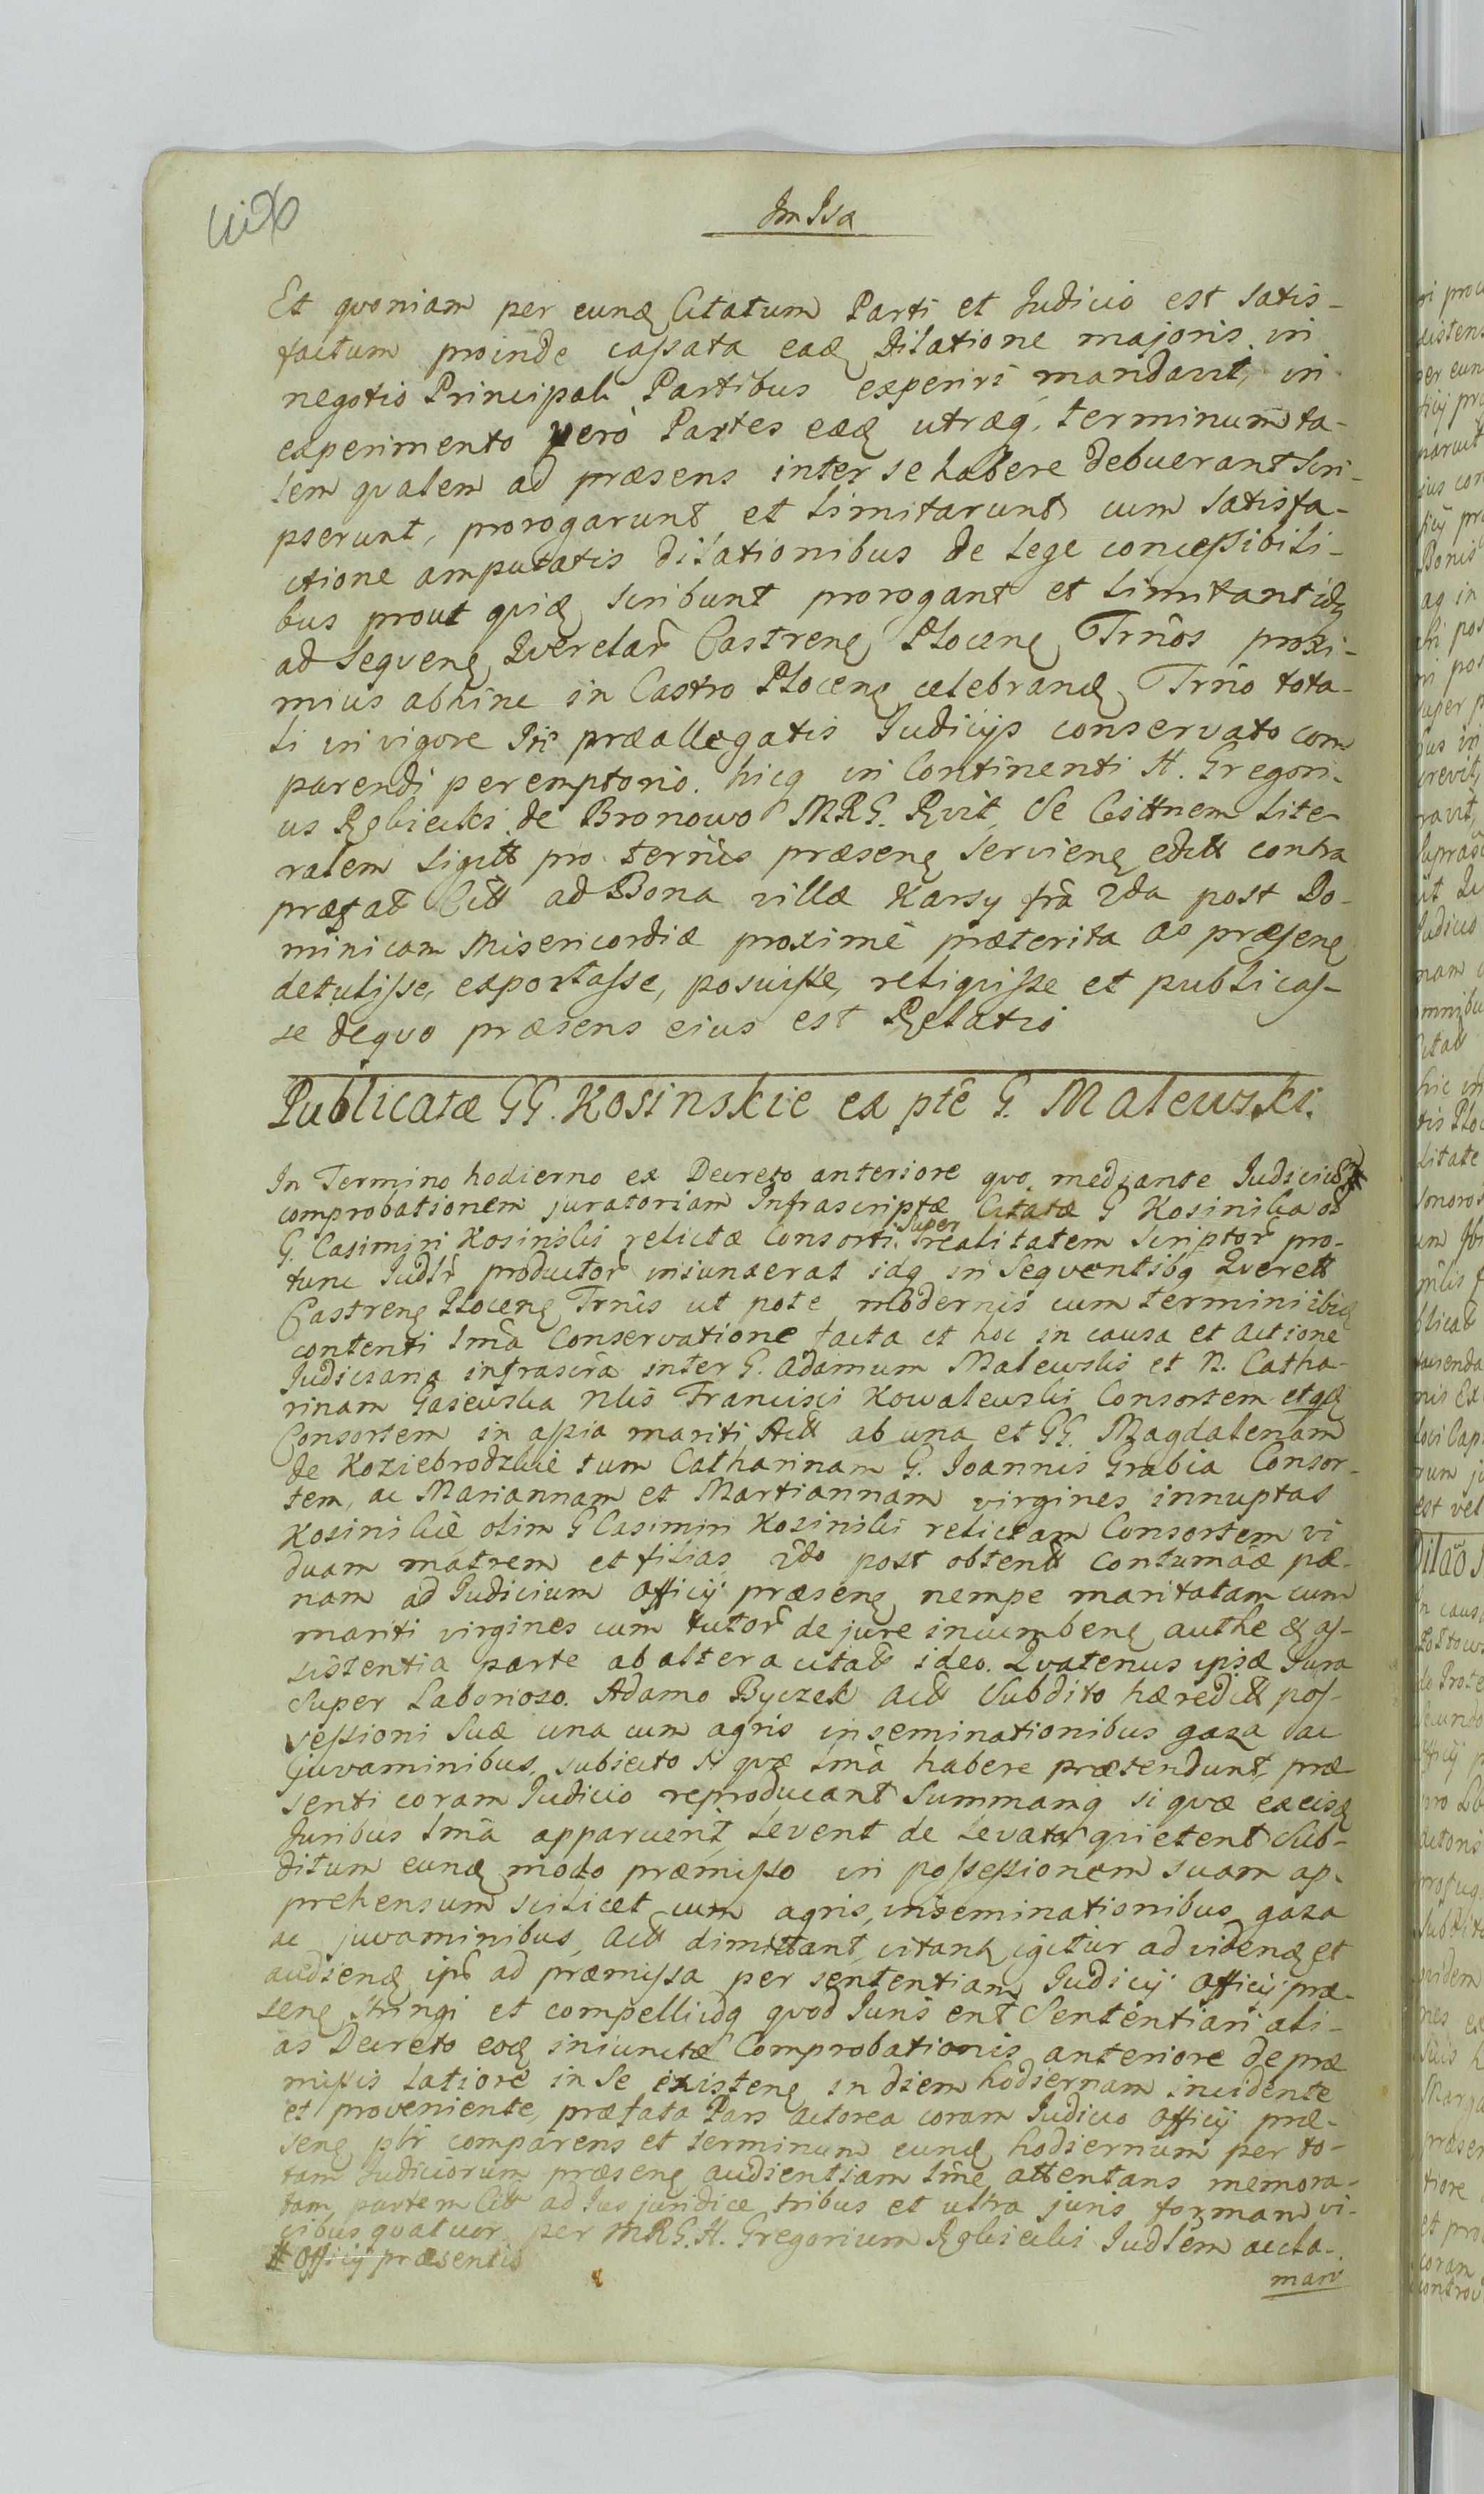 Im Isa
Et qvoniam per eund Citatum Parti et Judicio est satis-
factum proinde cassata ead Dilatione majoris in
negotio Principali Partibus experiri mandavit, in
experimento verò Partes eæd utræq, terminum ta-
lem qvalem ad præsens inter se habere debuerant scri-
pserunt, prorogarunt et limitarunt cum satisfa-
ctione amputatis dilationibus de lege concessibili-
bus prout qvid scribunt prorogant et limitant idq
ad seqvenꝭ Qverelar̃ Castrenꝭ Plocenꝭ Trn̄os proxi-
mius abhinc in Castro Plocenꝭ celebrand Trn̄o tota-
li in vigore præallegatis Judicijs conservato com
parendi peremptorio. hicq in Continenti H. Gregori-
us Rębiecki de Bronowo MRG. Rvit, se Cittnem lite-
ralem sigitt pro ternīs præsenꝭ servienꝭ editt contra
præfat Citt ad Bona villæ Karsy frā 2da post Do-
minicam Misericordiæ proxime præterita ao præsenꝭ
detulisse, exportasse, posuisse, reliqvisse et publicas-
se de quo præsens eius est Relatio
Publicatæ GG. Kosinskie ex ptē G. Malewski.
In Termino hodierno ex Decreto anteriore qvo mediante Judicium #
comprobationem juratoriam Infrascriptæ Citatæ G Kosinska od
G. Casimiri Kosinski relictæ Consorti super realitatem scriptor̃ pro-
tunc Judlr̃ productor̃ iniunxerat idq in seqventibq Qverett
Castrenꝭ Plocenꝭ Trn̄is ut pote modernis cum termini ibid
contenti lmā Conservatione facta et hoc in causa et actione
Judiciaria infrascrā inter G. Adamum Malewski et N. Catha-
rinam Gasewska Nlis Francisci Kowalewski Consortem et qd
Consortem in assia mariti Actt ab una et GG. Magdalenam
de Koziebrodzkie tum Catharinam G. Joannis Grabia Consor-
tem, ac Mariannam et Martiannam virgines innuptas
Kosinskie olim G Casimiri Kosinski relictam Consortem vi
duam matrem et filias 2do post obtentt contumāē pæ-
nam ad Judicium Officij præsenꝭ nempe maritatam cum
mariti virgines cum tutor̃ de jure incumbenꝭ authē & as-
sistentia parte ab altera citatt ideo. Qvatenus ipsæ Jura
super Laborioso. Adamo Byczek Actt subdito hæreditt pos-
sessioni suæ una cum agris inseminationibus gaza ac
juvaminibus, subiecto si qvæ lmā habere prætendunt, præ
senti coram Judicio reproducant Summamq si qvæ ex eisd
Juribus lmā apparuerit, levent de levata qvietent Sub-
ditum eund modo præmisso in possessionem suam ap-
prehensum scilicet cum agris, inseminationibus gaza
ac juvaminibus, Actt dimittant, citant igitur ad videnđ et
audienđ ips̃ ad præmissa per sententiam Judicij Officij præ-
senꝭ stringi et compelli idq qvod Juris erit Sententiari ali-
as Decreto eod iniunctæ Comprobationis anteriore de præ
missis latiore in se existenꝭ in diem hodiernam incidente
et proveniente, præfata Pars Actorea coram Judicio Officij præ-
senꝭ plr comparens et terminum eund hodiernum per to-
tam Judiciorum præsenꝭ audientiam lmē attentans memora-
tam partem Citt ad Jus juridice tribus et ultra juris formam vi-
cibus qvatuor per MRG. H. Gregorium Rębiecki Judlem accla-
# Officij præsentis
mari